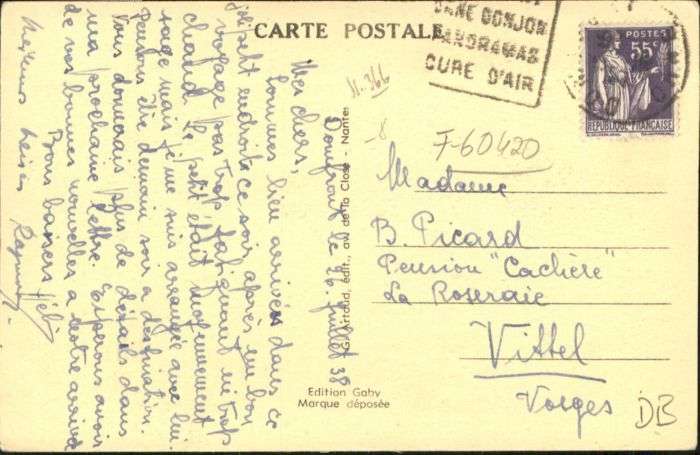 CARTE POSTALE
DONJON
PANORAMAS
CURE D'AIR
POSTES
55c
REPUBLIQUE FRANÇAISE
F-60420
Madame
B. Picard
Pension "Cachère"
La Roseraie
Vittel
Vosges
DB
Edition Gaby
Marque déposée
Artaud, édit., av de la Close - Nantes
Domfront le 26 juillet 38
Mes chers,
Sommes bien arrivés dans ce
petit endroit ce soir, après un bon
voyage pas trop fatiguant ni trop
chaud. Le petit était moyennement
sage mais je me suis arrangée avec lui.
Pensons être demain soir à destination.
Vous donnerais plus de détails dans
ma prochaine lettre. Espérons avoir
de vos bonnes nouvelles à notre arrivée
Bons baisers